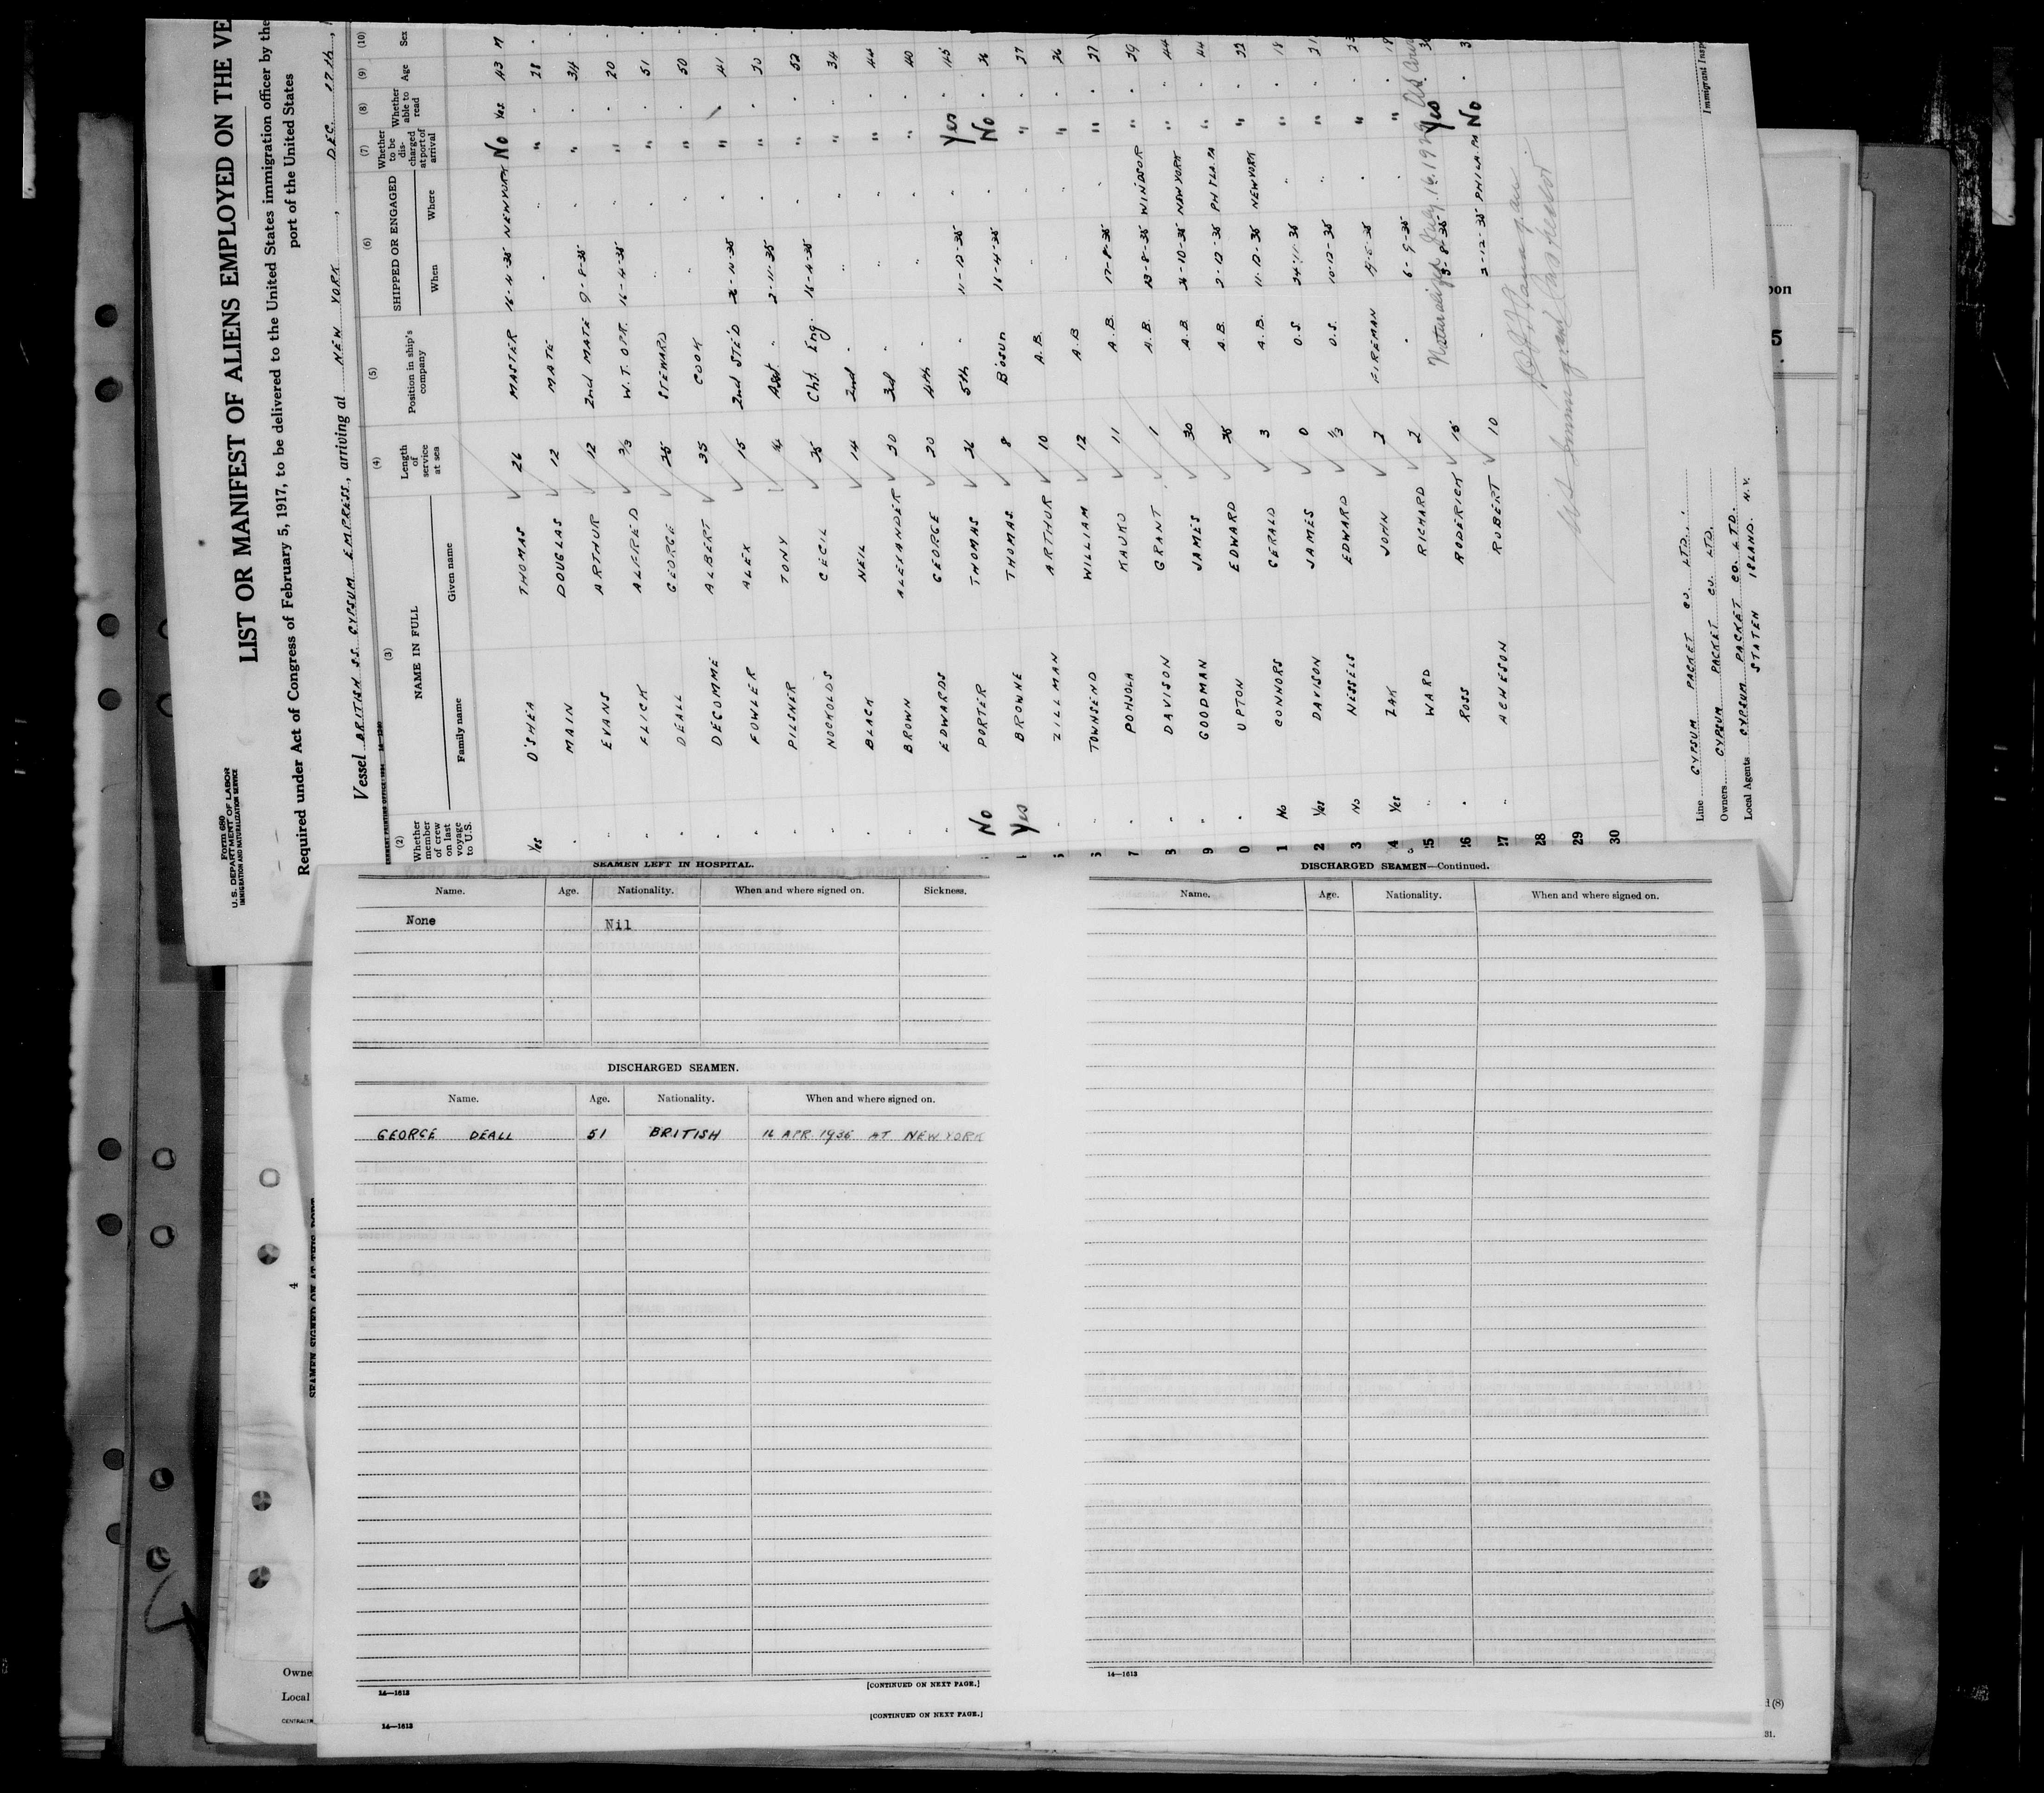 Form 680
U. S. DEPARTMENT OF LABOR
IMMIGRATION AND NATURALIZATION SERVICE
LIST OR MANIFEST OF ALIENS EMPLOYED ON THE VE
Required under Act of Congress of February 5, 1917, to be delivered to the United States immigration officer by the
port of the United States
Vessel BRITISH SS. GYPSUM EMPRESS, arriving at NEW YORK, DEC. 17th,
(2) (3) (4) (5) (6) (7) (8) (9) (10)
Whether member of crew on last voyage to U.S. NAME IN FULL Length of service at sea Position in ship's company SHIPPED OR ENGAGED Whether to be discharged at port of arrival Whether able to read Age Sex
Family name Given name When Where
Yes O'SHEA THOMAS 26 MASTER 16-4-35 NEW YORK No Yes 43 M
" MAIN DOUGLAS 12 MATE " " " " 28 "
" EVANS ARTHUR 12 2nd MATE 9-8-35 " " " 34 "
" FLICK ALFRED 2/3 W.T. OPR. 16-4-35 " " " 20 "
" DEALL GEORGE 35 STEWARD " " " " 51 "
" DECOMME ALBERT 35 COOK " " " " 50 "
" FOWLER ALEX 15 2nd STE'D " " 41 "
" PILSNER TONY Asst " 2-11-35 " " " 20 "
" NOCKOLDS CECIL 35 Cht. Eng. 16-4-35 " " " 52 "
" BLACK NEIL 14 2nd " " " " " 34 "
" BROWN ALEXANDER 20 3rd " " " " " 44 "
" EDWARDS GEORGE 20 4th " " " " " 40 "
No PORTER THOMAS 26 5th " 11-12-35 " Yes " 45 "
Yes BROWNE THOMAS 8 B'osun 16-4-35 " No " 36 "
" ZILLMAN ARTHUR 10 A.B. " " " " 27 "
" TOWNSEND WILLIAM 12 A.B " " " " 26 "
" POHJOLA KAUKO 11 A.B. 17-8-35 " " " 27
" DAVISON GRANT 1 A.B. 13-8-35 WINDSOR " " 29
" GOODMAN JAMES 30 A.B. 26-10-35 NEW YORK " " 44
" UPTON EDWARD 25 A.B. 2-12-35 PHILA. PA " " 44
No CONNORS GERALD 3 A.B. 11-12-35 NEW YORK " " 22
Yes DAVISON JAMES 0 O.S. 24-11-35 " " " 18
No NESSELS EDWARD 1/3 O.S. 10-12-35 " " " 21
Yes ZAK JOHN 2 FIREMAN " " " 23
" WARD RICHARD 2 " 6-9-35 " " " 18
" ROSS RODERICK 15 Naturalized 3-8-35 Yes
" ACHESON ROBERT 10 " 2-12-35 PHILA. PA No
28
29
30
Line GYPSUM PACKET CO. LTD.
Owners GYPSUM PACKET CO. LTD.
Local Agents GYPSUM PACKET CO. LTD.
STATEN ISLAND. N.Y.
Immigrant Insp
SEAMEN LEFT IN HOSPITAL.
Name. Age. Nationality. When and where signed on. Sickness.
None Nil
DISCHARGED SEAMEN.
Name. Age. Nationality. When and where signed on.
GEORGE DEALL 51 BRITISH 16 APR. 1935 AT NEW YORK
14—1613 [CONTINUED ON NEXT PAGE.]
14—1613 [CONTINUED ON NEXT PAGE.]
DISCHARGED SEAMEN—Continued.
Name. Age. Nationality. When and where signed on.
14—1613
4
SEAMEN SIGNED ON AT THIS PORT
Owne
Local
5